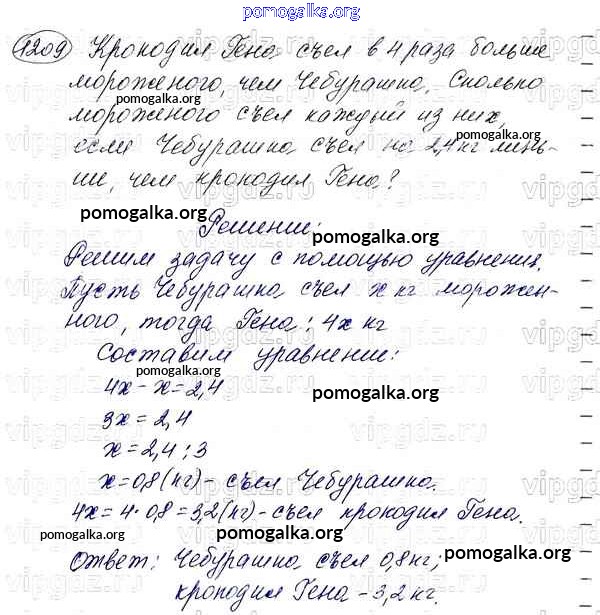 pomogalka.org
1209 Крокодил Гена съел в 4 раза больше
мороженого, чем Чебурашка. Сколько
pomogalka.org
мороженого съел каждый из них,
pomogalka.org
если Чебурашка съел на 2,4 кг мень-
ше, чем крокодил Гена?
pomogalka.org
Решение:
pomogalka.org
Решим задачу с помощью уравнения.
Пусть Чебурашка съел x кг морожен-
ного, тогда Гена: 4x кг
pomogalka.org
Составим уравнение:
pomogalka.org
4x - x = 2,4
pomogalka.org
3x = 2,4
x = 2,4 : 3
x = 0,8 (кг) - съел Чебурашка.
pomogalka.org
4x = 4 · 0,8 = 3,2 (кг) - съел крокодил Гена.
pomogalka.org
pomogalka.org
Ответ: Чебурашка съел 0,8 кг;
pomogalka.org
крокодил Гена - 3,2 кг.